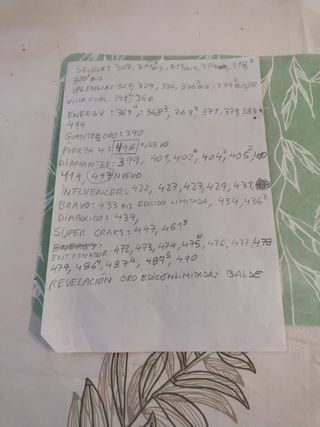 SEVILLA: 307, 311 BIS, 313 BIS, 314, 318²
320 BIS
VALENCIA: 327, 329, 336, 336 BIS, 339 BIS
VILLAREAL: 344, 366
ENERGY: 368, 368³, 369², 371, 374, 383
494
GUANTES ORO: 390
FUERZA 4: 496 NUEVO
DIAMANTES: 399, 401, 402², 404², 405²,
414, 497 NUEVO
INFLUENCER: 422, 427, 427, 429, 431
BRAVO: 433 BIS EDICIÓN LIMITADA, 434, 436²
DIABOLICO: 439,
SUPER CRAKS: 447, 451³
ENERGY:
ENTRENADOR: 472, 473, 474, 475⁴, 476, 477, 478
479, 486⁴, 487⁴, 489⁵, 490
REVELACIÓN ORO EDICIÓN LIMITADA: BALDE